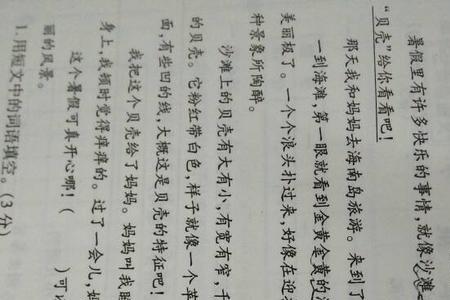 暑假里有许多快乐的事情，就像沙滩
“贝壳”给你看看吧！
那天我和妈妈去海南岛旅游。来到了
一到海滩，第一眼就看到金黄金黄的
美丽极了。一个个浪头扑过来，好像在迎
种景象所陶醉。
沙滩上的贝壳有大有小，有宽有窄，千
的贝壳。它粉红带白色，样子就像一个苹
面，有些凹的线，大概这是贝壳的特征吧！
我把这个贝壳给了妈妈。妈妈叫我
身上，我顿时觉得痒痒的。过了一会儿，
这个暑假可真开心哪！（ ）可
丽的风景。
1.用短文中的词语填空。（3分）